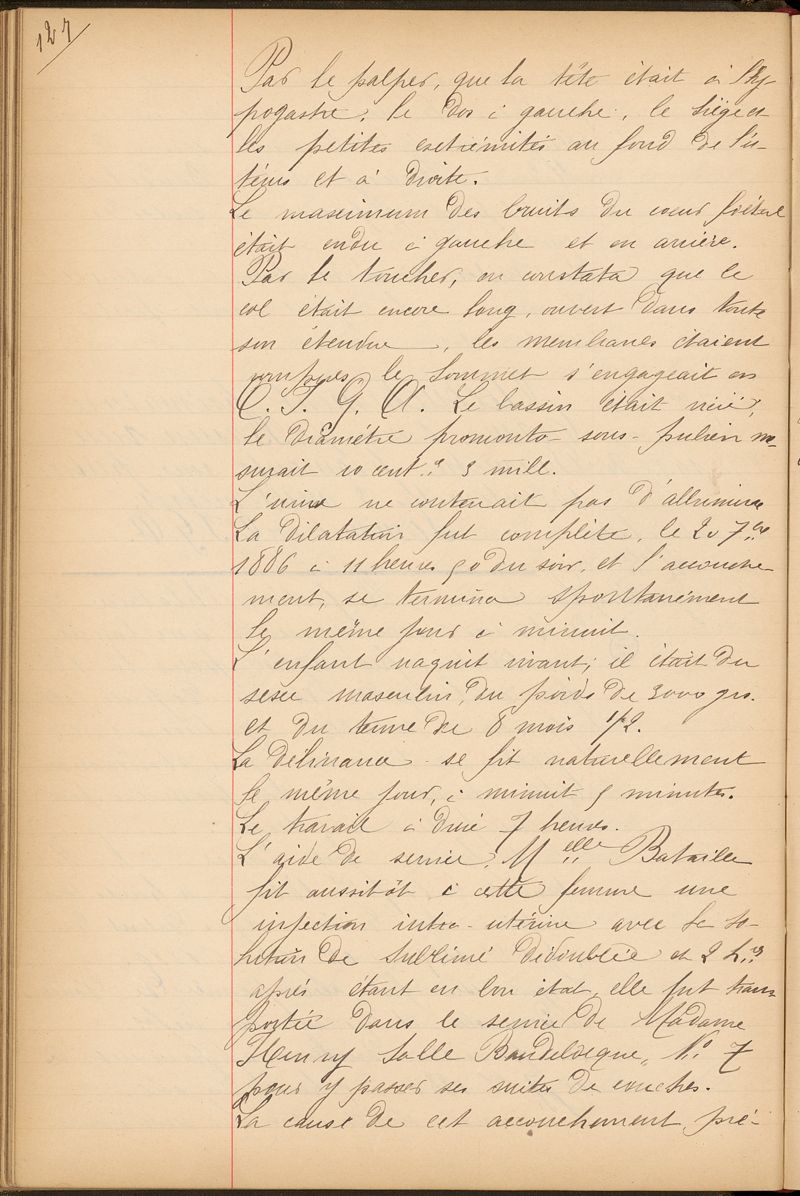 127
Par le palper, que la tête était à l'hy-
pogastre, le dos à gauche, le siège et
les petites extrémités au fond de l'u-
térus et à droite.
Le maximum des bruits du coeur foetal
était endu à gauche et en arrière.
Par le toucher, on constata que le
col était encore long, ouvert dans toute
son étendue, les membranes étaient
rompues le sommet s'engageait en
O. I. G. A. Le bassin était vicié,
le diamètre promonto-sous-pubien me-
surait 10 cent. 3 mill.
L'urine ne contenait pas d'albumine
La dilatation fut complète, le 20 7bre
1886 à 11 heures 50 du soir, et l'accouche-
ment, se termina spontanément
le même jour à minuit.
L'enfant naquit vivant; il était du
sexe masculin, du poids de 3000 grs.
et du terme de 8 mois 1/2.
La délivrance se fit naturellement
le même jour, à minuit 5 minutes.
Le travail a duré 7 heures.
L'aide de service, Melle Bataille
fit aussitôt à cette femme une
injection intra-utérine avec la so-
lution de sublimé dédoublée et 2 hres
après étant en bon état, elle fut trans
portée dans le service de Madame
Henry Salle Baudelocque, No 7
pour y passer ses suites de couches.
La cause de cet accouchement pré-